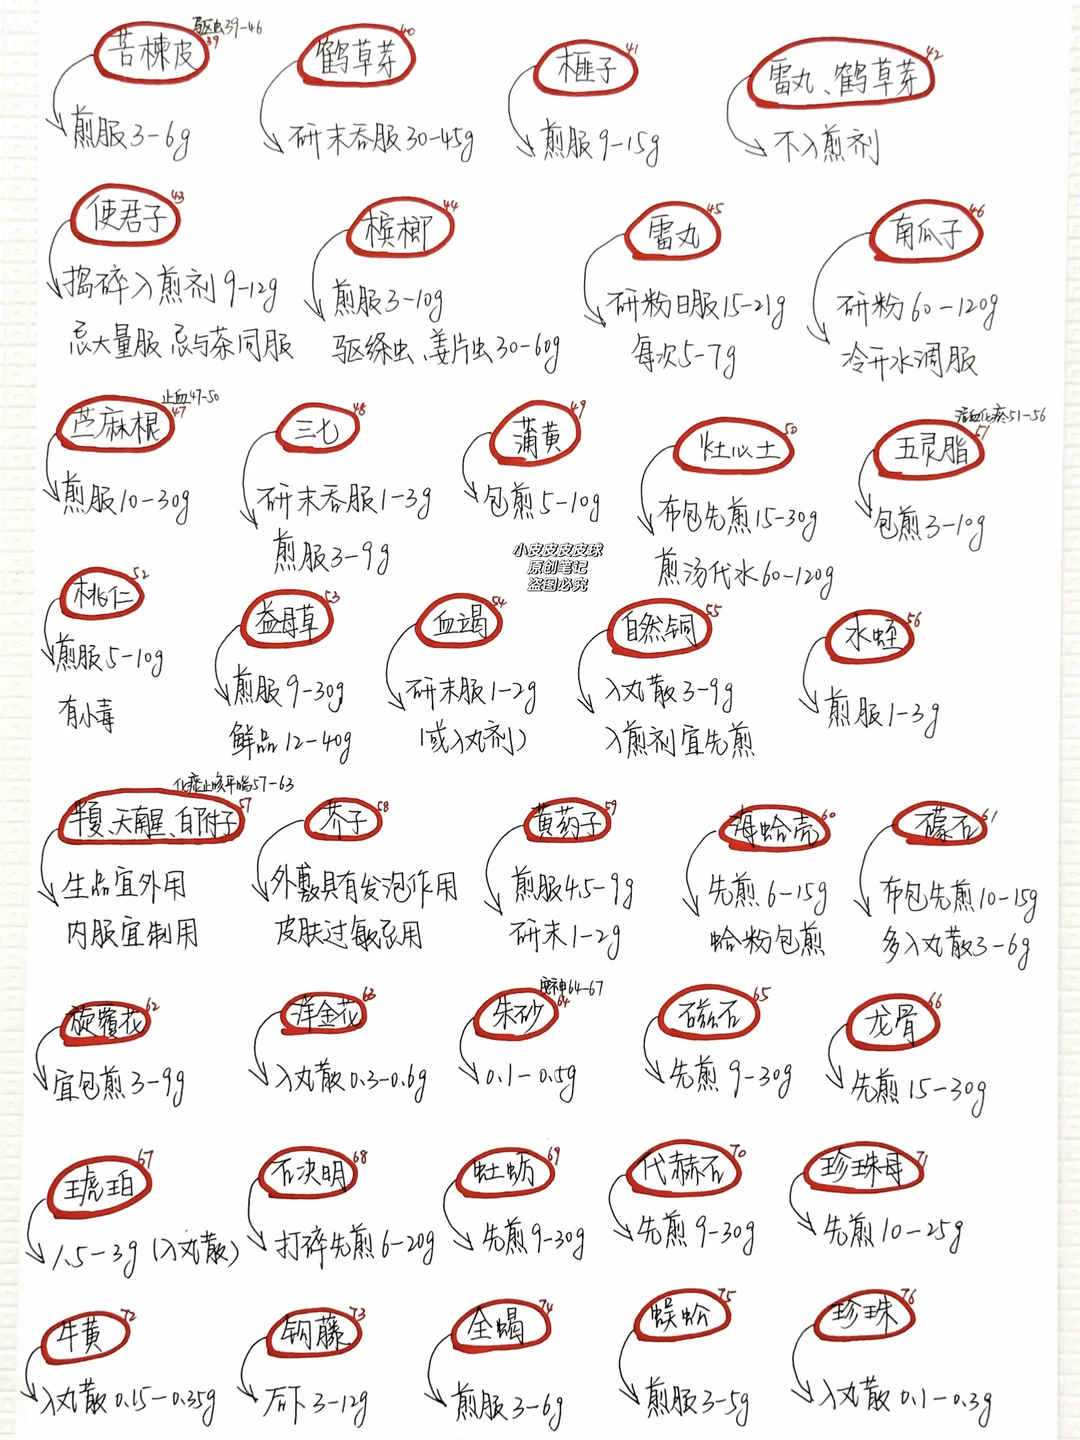 驱虫39-46
苦楝皮 39
煎服3-6g
鹤草芽 40
研末吞服30-45g
榧子 41
煎服9-15g
雷丸、鹤草芽 42
不入煎剂
使君子 43
捣碎入煎剂9-12g
忌大量服 忌与茶同服
槟榔 44
煎服3-10g
驱绦虫、姜片虫30-60g
雷丸 45
研粉日服15-21g
每次5-7g
南瓜子 46
研粉60-120g
冷开水调服
止血47-50
苎麻根 47
煎服10-30g
三七 48
研末吞服1-3g
煎服3-9g
蒲黄 49
包煎5-10g
灶心土 50
布包先煎15-30g
煎汤代水60-120g
活血化瘀51-56
五灵脂 51
包煎3-10g
小皮皮皮皮球
原创笔记
盗图必究
桃仁 52
煎服5-10g
有小毒
益母草 53
煎服9-30g
鲜品12-40g
血竭 54
研末服1-2g
(或入丸剂)
自然铜 55
入丸散3-9g
入煎剂宜先煎
水蛭 56
煎服1-3g
化痰止咳平喘57-63
半夏、天南星、白附子 57
生品宜外用
内服宜制用
芥子 58
外敷具有发泡作用
皮肤过敏忌用
黄药子 59
煎服4.5-9g
研末1-2g
海蛤壳 60
先煎6-15g
蛤粉包煎
礞石 61
布包先煎10-15g
多入丸散3-6g
旋覆花 62
宜包煎3-9g
洋金花 63
入丸散0.3-0.6g
安神64-67
朱砂 64
0.1-0.5g
磁石 65
先煎9-30g
龙骨 66
先煎15-30g
琥珀 67
1.5-3g(入丸散)
石决明 68
打碎先煎6-20g
牡蛎 69
先煎9-30g
代赭石 70
先煎9-30g
珍珠母 71
先煎10-25g
牛黄 72
入丸散0.15-0.35g
钩藤 73
后下3-12g
全蝎 74
煎服3-6g
蜈蚣 75
煎服3-5g
珍珠 76
入丸散0.1-0.3g